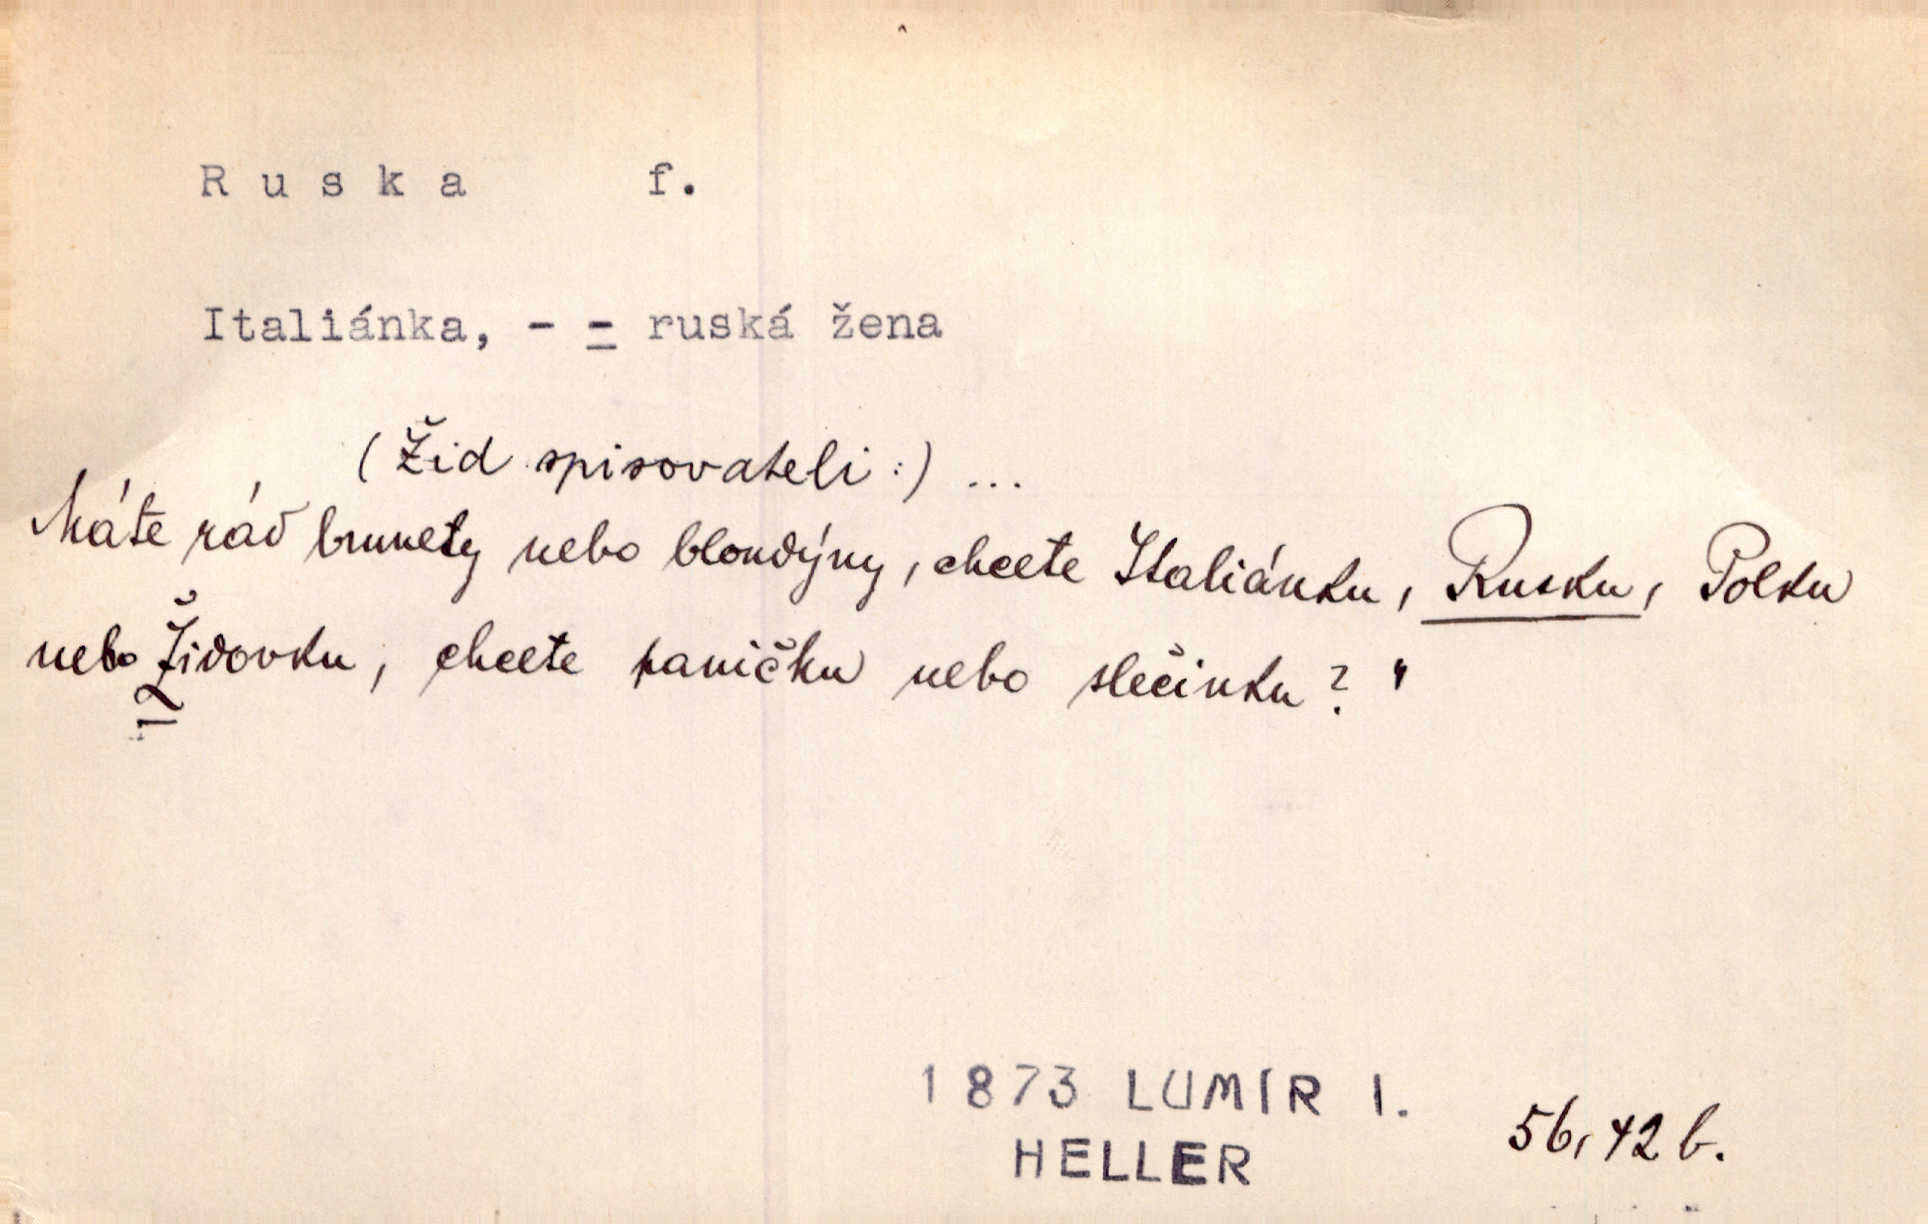 Ruska f.
Italiánka, - = ruská žena
(Žid spisovateli:) ...
Máte rád brunety nebo blondýny, chcete Italiánku, Rusku, Polku
nebo Židovku, chcete paničku nebo slečinku? "
1873 LUMÍR I.
HELLER
56, 42 b.